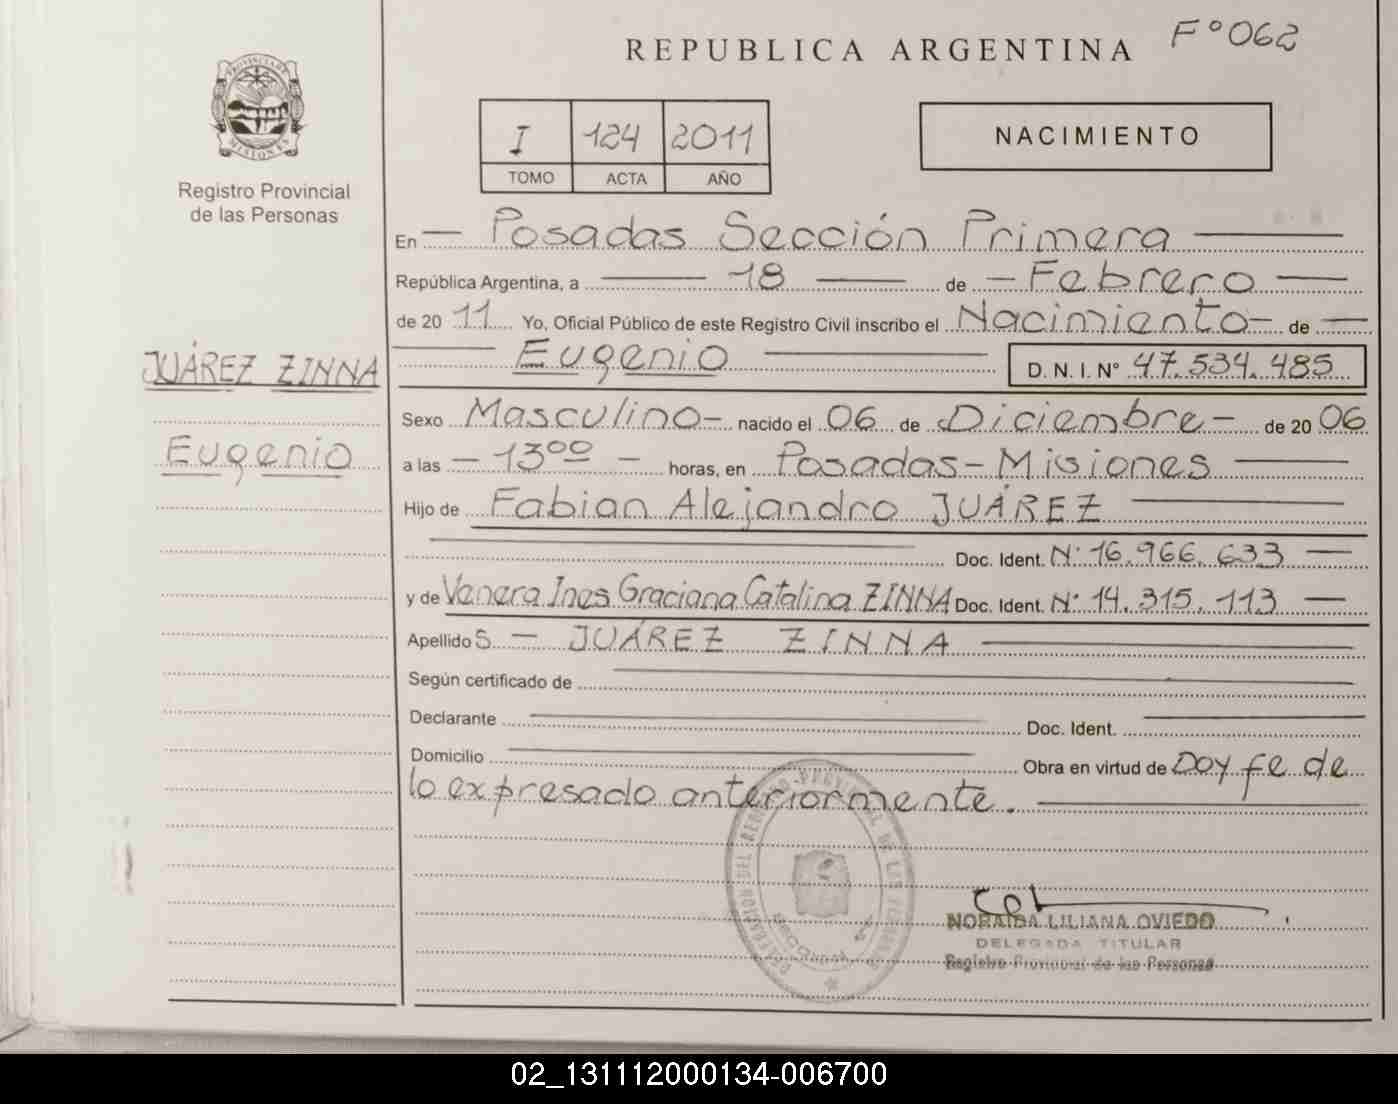 REPUBLICA ARGENTINA
Fº 062
PROVINCIA DE MISIONES
Registro Provincial
de las Personas
I 124 2011
TOMO ACTA AÑO
NACIMIENTO
En Posadas Sección Primera
República Argentina, a 18 de Febrero
de 2011 Yo, Oficial Público de este Registro Civil inscribo el Nacimiento de
Eugenio D. N. I. Nº 47.534.485
JUÁREZ ZINNA
Eugenio
Sexo Masculino nacido el 06 de Diciembre de 2006
a las 13ºº horas, en Posadas - Misiones
Hijo de Fabian Alejandro JUÁREZ
Doc. Ident. Nº 16.966.633
y de Venera Ines Graciana Catalina ZINNA Doc. Ident. Nº 14.315.113
Apellido S JUÁREZ ZINNA
Según certificado de
Declarante Doc. Ident.
Domicilio Obra en virtud de Doy fe de
lo expresado anteriormente.
NORAIDA LILIANA OVIEDO
DELEGADA TITULAR
Registro Provincial de las Personas
02_131112000134-006700